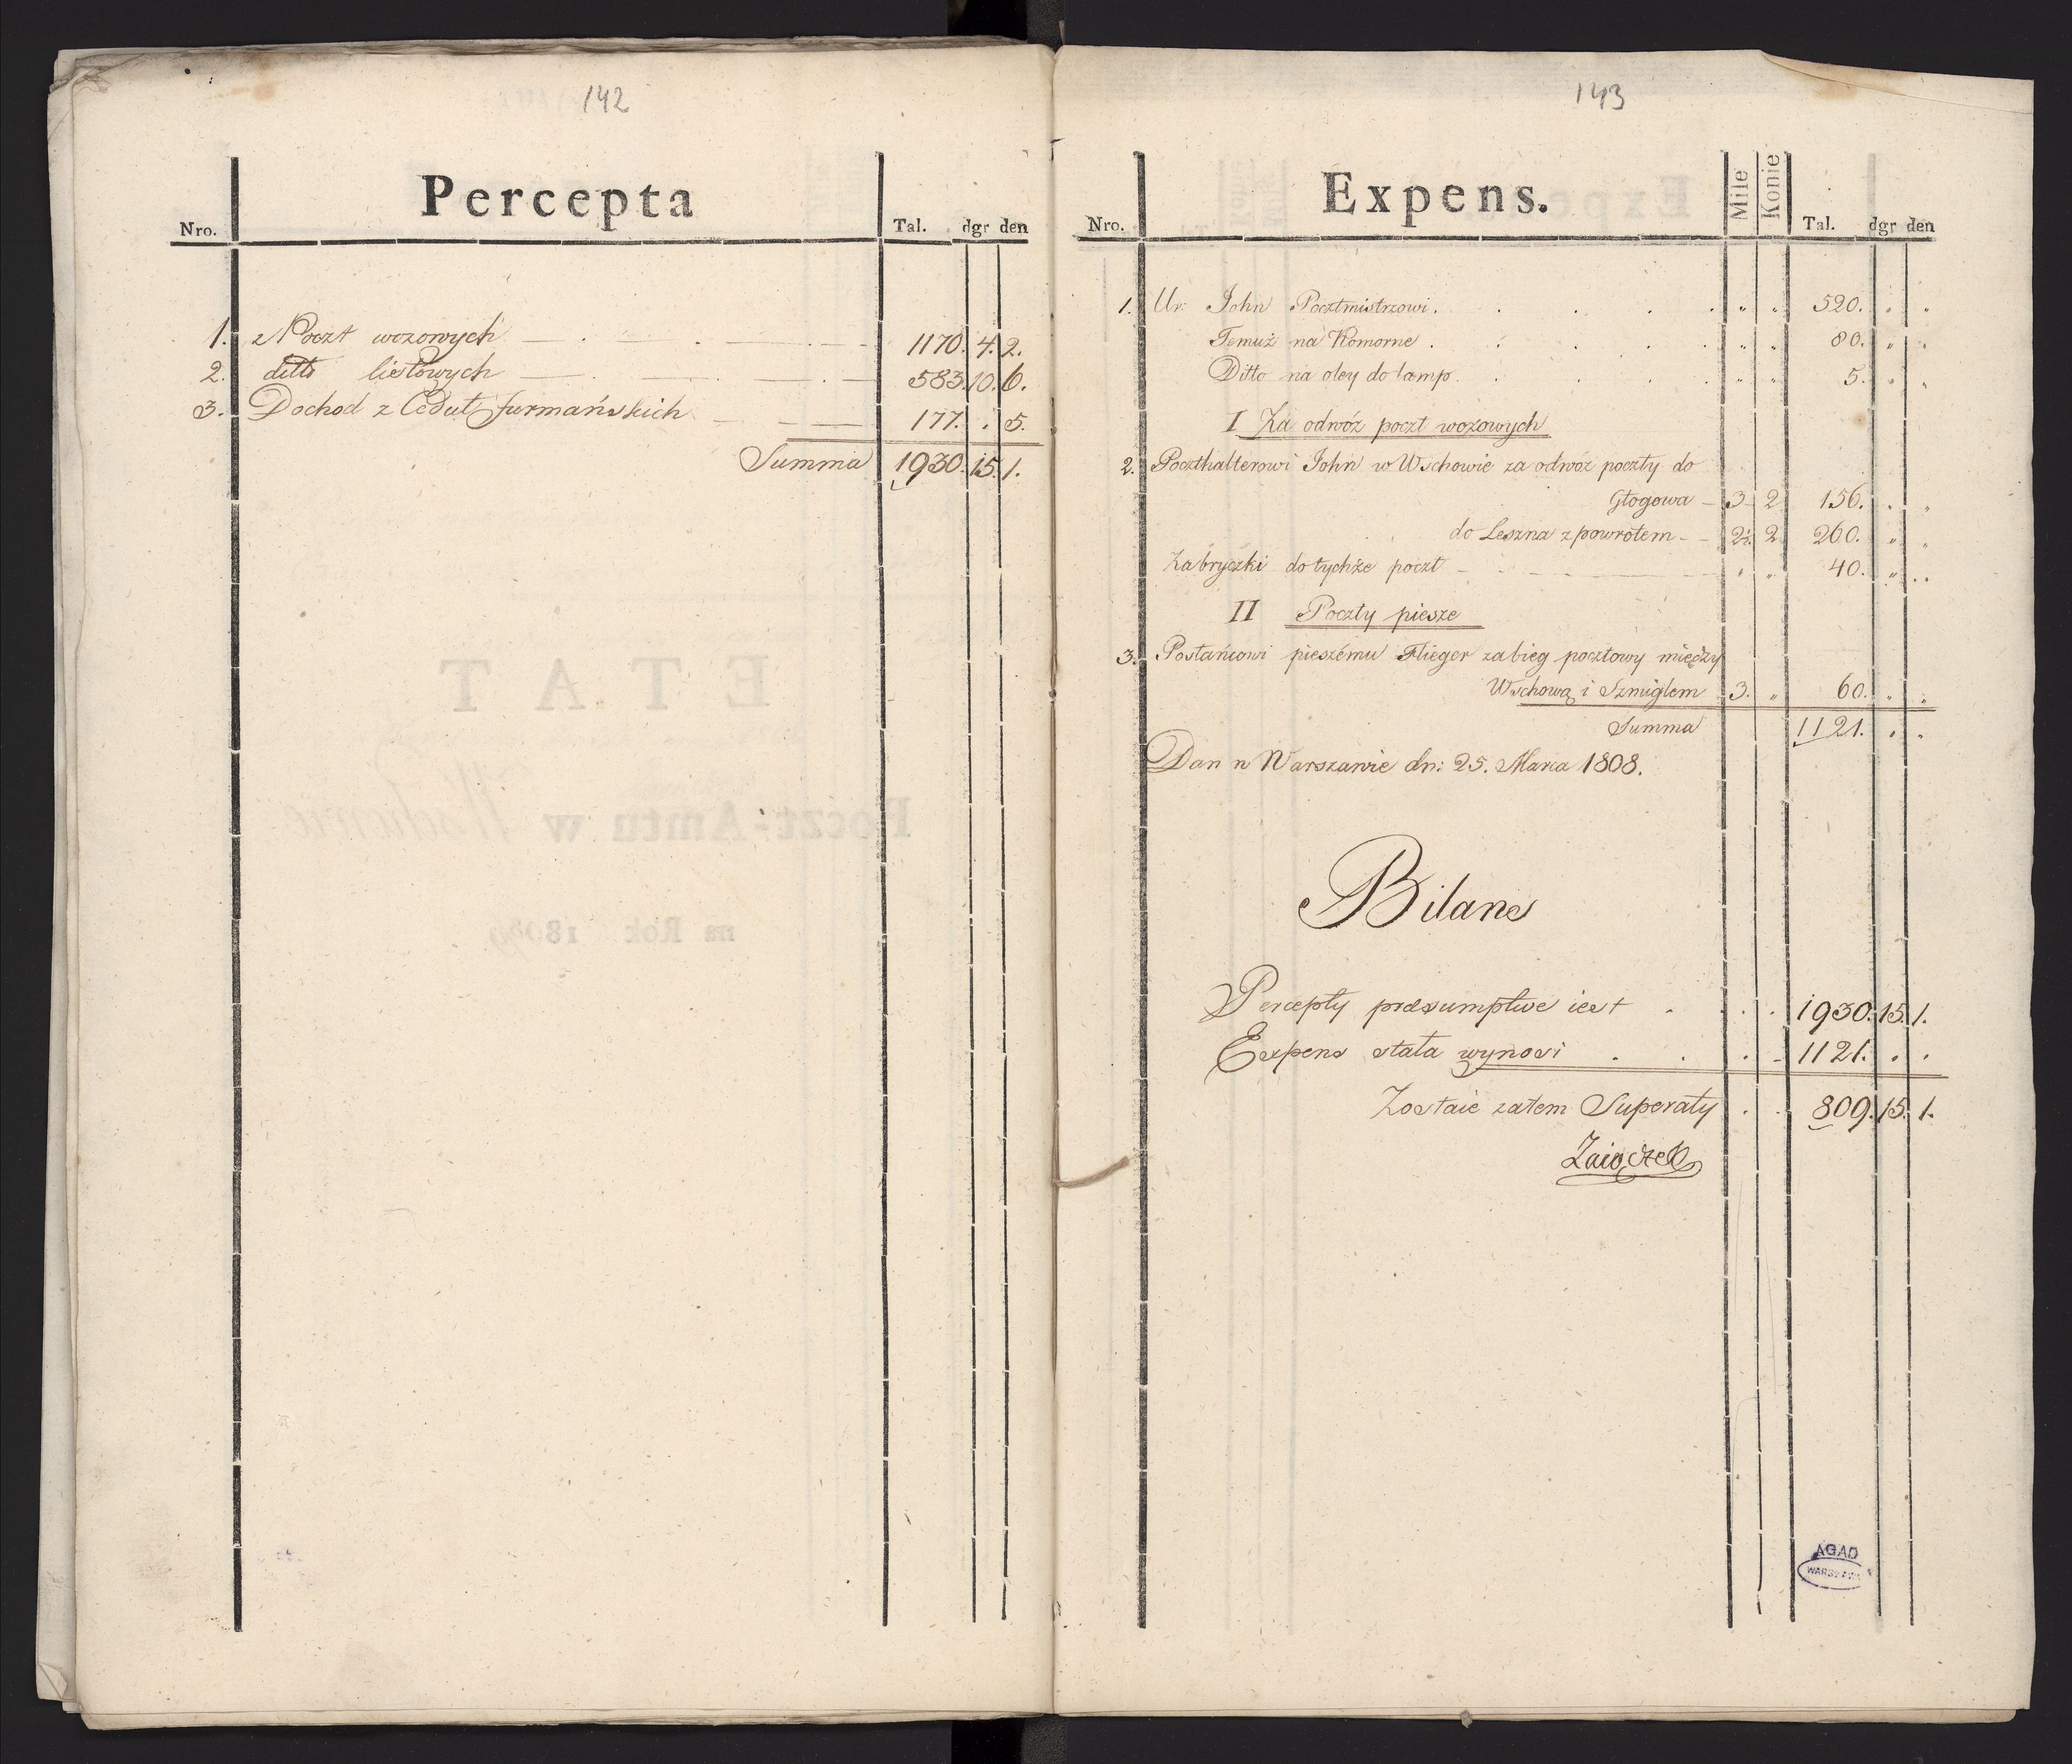 142
Percepta
Nro. Tal. dgr den
1. z Poczt wozowych 1170. 4. 2.
2. ditto listowych 583. 10. 6.
3. Dochod z Ceduł furmańskich 177. . 5.
Summa 1930. 15. 1.
143
Expens.
Nro. Mile Konie Tal. dgr den
1. Ur: John Pocztmistrzowi . . . . . " " 520. " "
Temuż na Komorne . . . . . " " 80. " "
Ditto na oley do lamp . . . . " " 5. " "
I Za odwóz poczt wozowych
2. Poczthalterowi John w Wschowie za odwóz poczty do
Głogowa – 3 2 156. " "
do Leszna z powrotem – 2½ 2 260. " "
Za bryczki do tychże poczt " " 40. " "
II Poczty piesze
3. Posłańcowi pieszému Flieger za bieg pocztowy między
Wschową i Szmiglem 3. " 60. " "
Summa 1121. " "
Dan w Warszawie dn: 25. Marca 1808.
Bilans
Percepty präsumptive iest . . . . 1930. 15. 1.
Expens stała wynosi . . . - 1121. . .
Zostaie zatem Superaty . . 809. 15. 1.
Zaiączek
AGAD
WARSZAWA